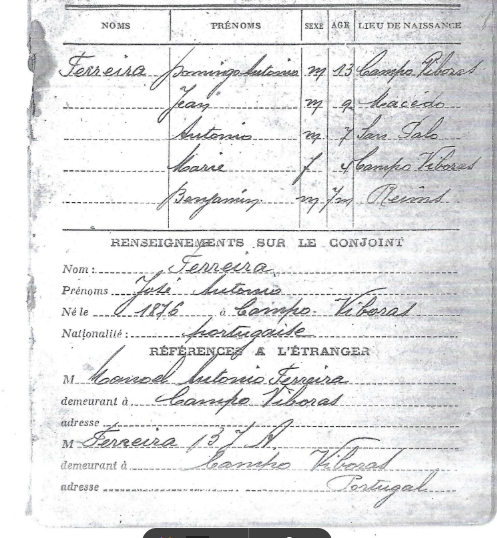 NOMS PRÉNOMS SEXE AGE LIEU DE NAISSANCE
Ferreira Domingo Antonio m 13 Campo Viboras
Jean m 9 Macédo
Antonio m 7 San Palo
Marie f 4 Campo Viboras
Benjamin m 7m Reims
RENSEIGNEMENTS SUR LE CONJOINT
Nom : Ferreira
Prénoms José Antonio
Né le 1876 à Campo Viboras
Nationalité : portugaise
RÉFÉRENCES A L'ÉTRANGER
M Manoel Antonio Ferreira
demeurant à Campo Viboras
adresse
M Ferreira
demeurant à Campo Viboras
adresse Portugal